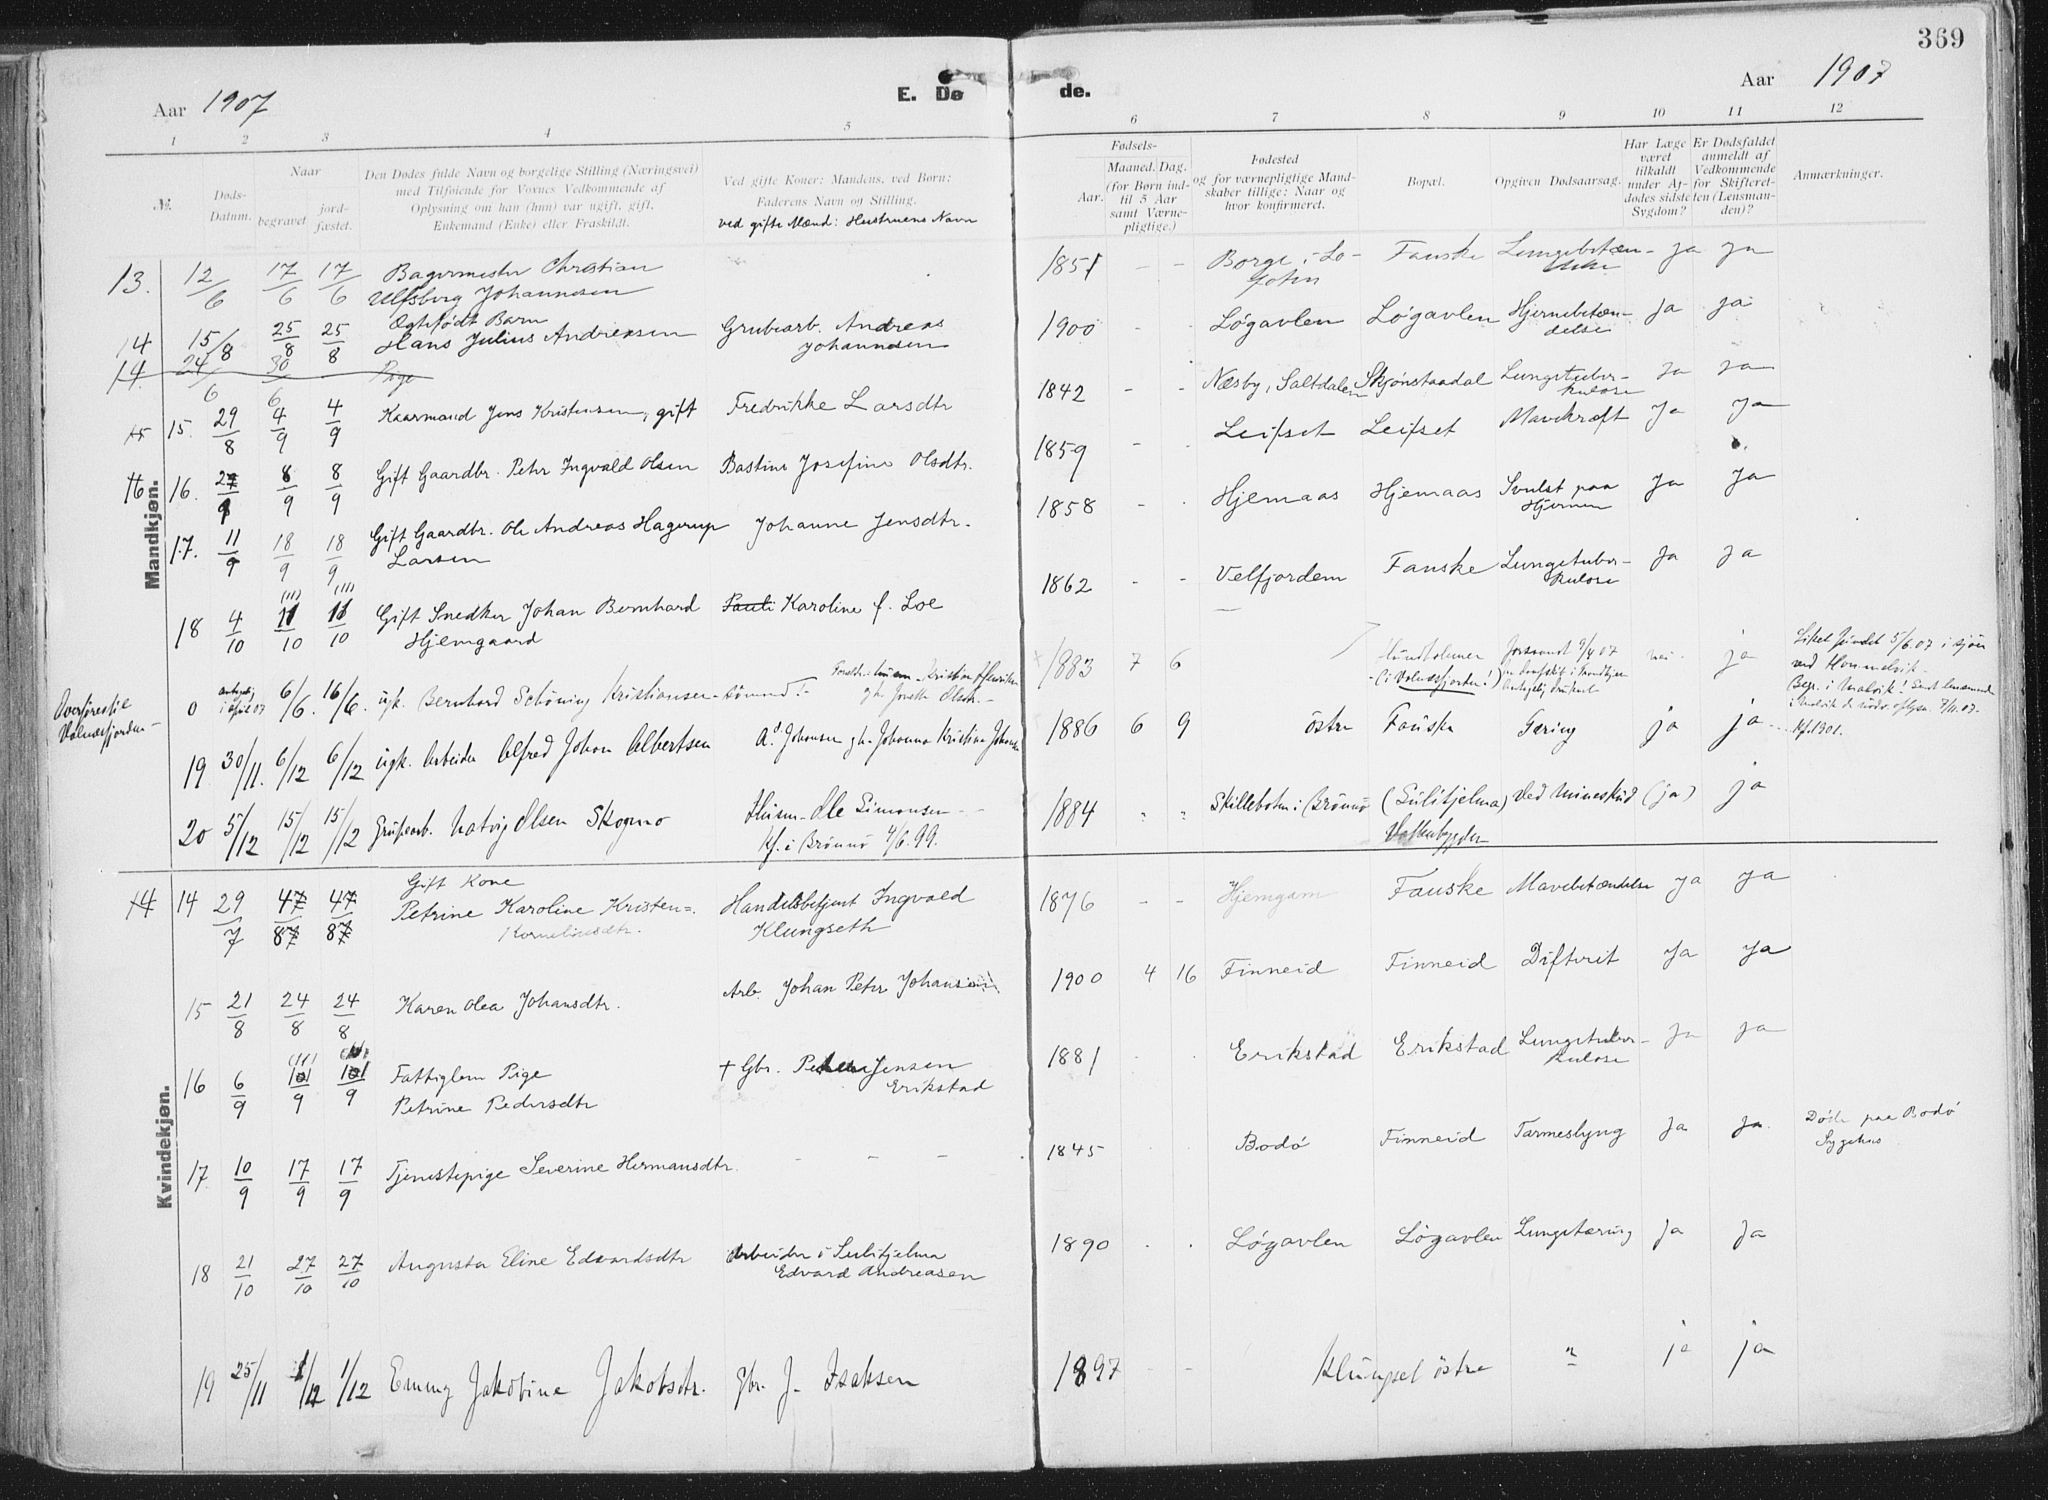 369
Aar 1907
E. Dø de.
Aar 1907
1 2 3 4 5 6 7 8 9 10 11 12
№.
Døds-
Datum.
Naar
begravet
jord-
fæstet.
Den Dødes fulde Navn og borgelige Stilling (Næringsvei)
med Tilføiende for Voxnes Vedkommende af
Oplysning om han (hun) var ugift, gift,
Enkemand (Enke) eller Fraskildt.
Ved gifte Koner: Mandens, ved Børn:
Faderens Navn og Stilling.
ved gifte Mænd: Hustruens Navn
Fødsels-
Aar.
Maaned. Dag.
(for Børn ind-
til 5 Aar
samt Værne-
pligtige.)
Fødested
og for værnepligtige Mand-
skaber tillige: Naar og
hvor konfirmeret.
Bopæl.
Opgiven Dødsaarsag.
Har Læge
været
tilkaldt
under Af-
dødes sidste
Sygdom?
Er Dødsfaldet
anmeldt af
Vedkommende
for Skifteret-
ten (Lensman-
den)?
Anmærkninger.
Mandkjøn.
13. 12/6 17/6 17/6 Bagermester Christian 1851 - - Borge i Lo- Fauske Lungebetæn- Ja Ja
Ulfsberg Johannesen foten
Ægtefødt Barn
14 15/8 25/8 25/8 Hans Julius Andreasen Grubearb. Andreas 1900 - - Løgavlen Løgavlen Hjernebetæn- Ja Ja
Johannesen delse
14. 24/6 30/6 Pige
15 15. 29/8 4/9 4/9 Kaarmand Jens Kristensen, gift Fredrikke Larsdtr 1842 - - Næsby, Saltdalen Skjønstaadal Lungetuber- Ja Ja
kulose
16 16. 27/9 8/9 8/9 Gift Gaardbr. Peter Ingvald Olsen Bastine Josefine Olsdtr. 1859 - - Leifset Leifset Mavekræft Ja Ja
17. 11/9 18/9 18/9 Gift Gaardbr. Ole Andreas Hagerup Johanne Jensdtr. 1858 - - Hjemaas Hjemaas Svulst paa Ja Ja
Larsen Hjernen
(11) (11)
18 4/10 11/10 11/10 Gift Snedker Johan Bernhard Pauli Karoline f. Loe 1862 - - Velfjorden Fauske Lungetuber- Ja Ja
Hjemgaard kulose
0 6/6. 16/6. ugk. Bernhard Schöning Kristiansen 1883 7 6 (i Valnesfjorden!) nei ja
Liket fundet 5/6.07 i sjøen
ved Hommelvik
19 30/11. 6/12 6/12 ugk. Arbeider Alfred Johan Albertsen 1886 6 9 östre Fauske Tæring ja ja
Kf. 1901.
20 5/12 15/12 15/12 Grubearb. Hatvig Olsen Skogmo Husm. Ole Simonsen 1884 " " Skillebotn i Brønnø (Sulitjelma) Ved Mineskud (ja) ja
Kf. i Brönnö 4/6.99.
Kvindekjøn.
Gift Kone
14 14 29/7 47/87 47/87 Petrine Karoline Kristen=. Handelsbetjent Ingvald 1876 - - Hjemgam Fauske Mavebetændelse Ja Ja
Korneliusdtr. Klungseth
15 21/8 24/8 24/8 Karen Olea Johansdtr. Arb. Johan Peter Johansen 1900 4 16 Finneid Finneid Diftrit Ja Ja
(11) (11)
16 6/9 101/9 101/9 Fattiglem Pige + Gbr. Peder Jensen 1881 Erikstad Erikstad Lungetuber- Ja Ja
Petrine Pedersdtr Erikstad kulose
17. 10/9 17/9 17/9 Tjenestepige Severine Hermansdtr. - - - 1845 Bodø Finneid Tarmeslyng Ja Ja. Døde paa Bodø
Sygehus
18 21/10 27/10 27/10 Augusta Eline Edvardsdtr Arbeider i Sulitjelma 1890 Løgavlen Løgavlen Lungetæring Ja Ja
Edvard Andreasen
19 25/11 1/12 1/12 Emmy Jakobine Jakobsdtr. Gbr. J. Isaksen 1897 - - Klungset östre " ja ja